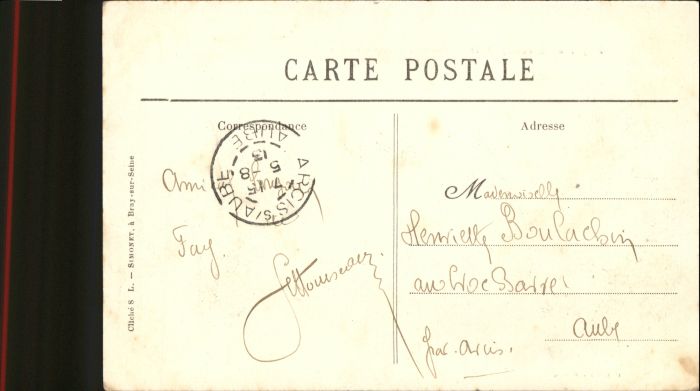 CARTE POSTALE
Correspondance
Adresse
Cliché S L. — SIMONET, à Bray-sur-Seine
ARCIS S/ AUBE
AUBE
13
5
8
15
Ami
Fay.
Mademoiselle
Henriette Boulachin
au
Aube
par Arcis.